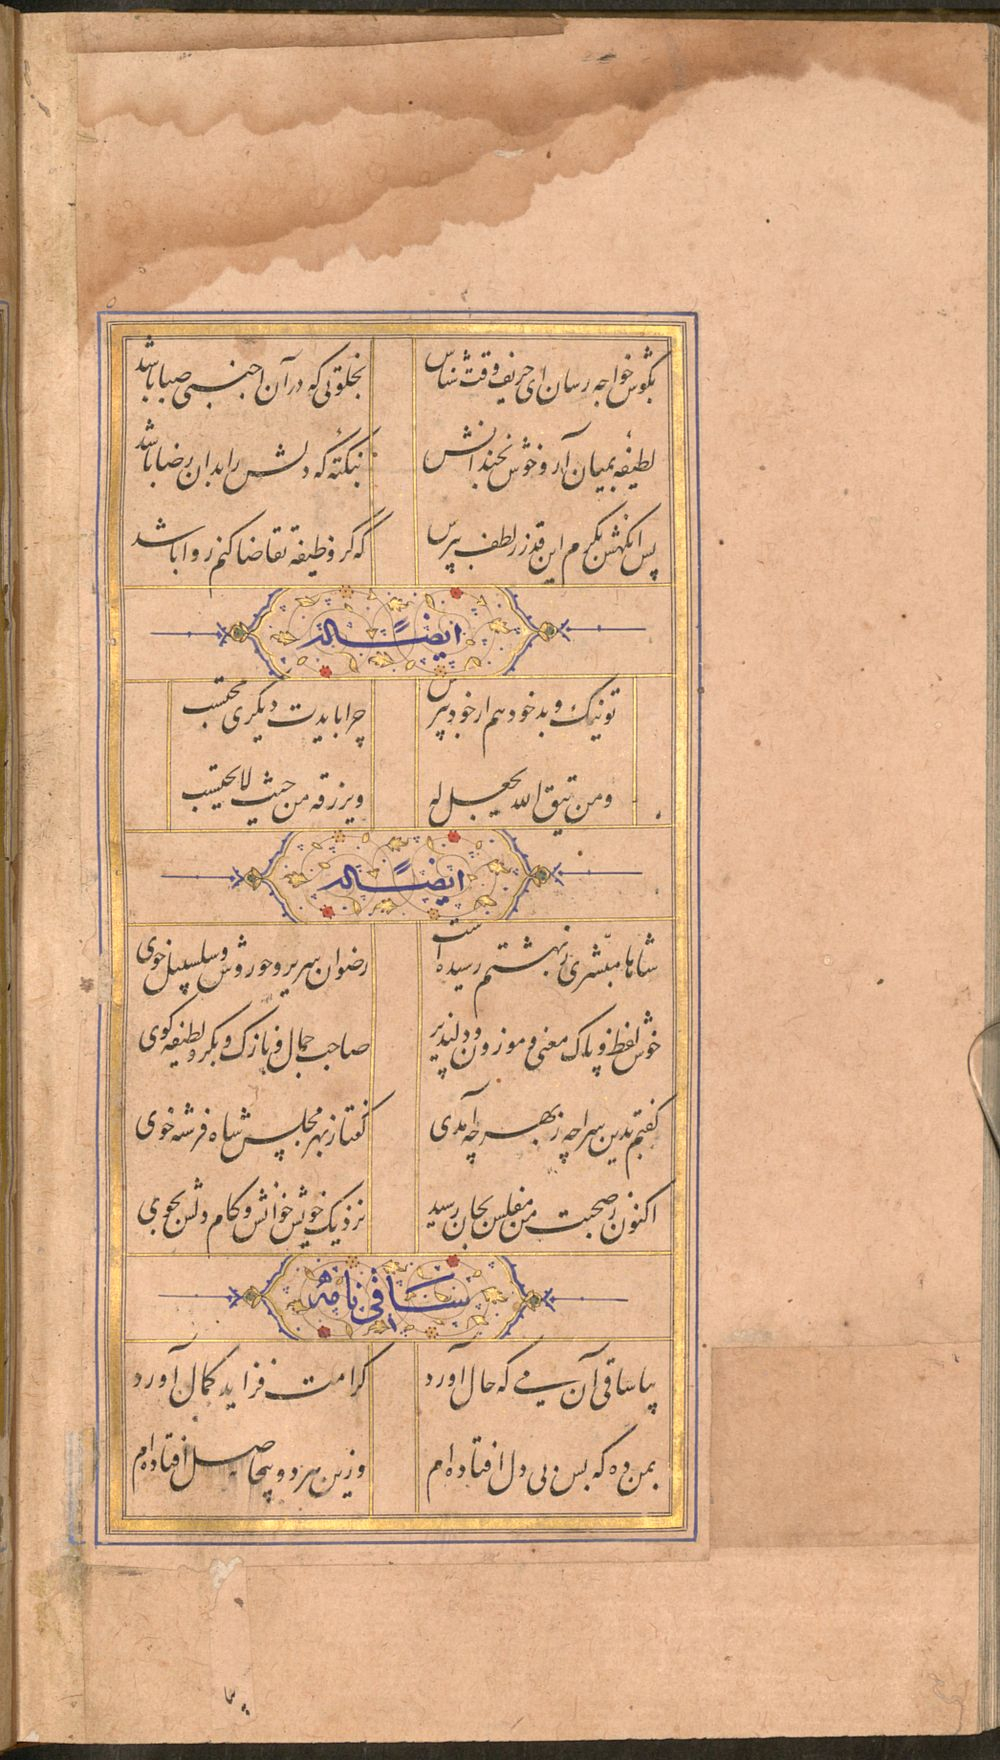 بگوش خواجه رسان ای حریف وقت شناس بخلوتی که در آن اجنبی صبا باشد
لطیفه بمیان آر و خوش بخندانش بنکته که دلش را بدان رضا باشد
پس انکهش بکرم این قدر ز لطف بپرس که گر وظیفه تقاضا کنم روا باشد
ایضاً له
تو نیک و بد خود هم از خود بپرس چرا بایدت دیگری محتسب
ومن یتق الله یجعل له ویرزقه من حیث لا یحتسب
ایضاً له
شاها مبشری ز بهشتم رسیده است رضوان سریر و حوروش و سلسبیل خوی
خوش لفظ و پاک معنی و موزون و دلپذیر صاحب جمال و نازک و بکر و لطیفه کوی
کفتم بدین سراچه ز بهر چه آمدی کفتا ز بهر مجلس شاه فرشته خوی
اکنون ز صحبت من مفلس بجان رسید نزدیک خویش خوانش و کام دلش بجوی
ساقی نامه
بیا ساقی آن می که حال آورد کرامت فزاید کمال آورد
بمن ده که بس بی دل افتاده ام وزین هر دو بیحاصل افتاده ام